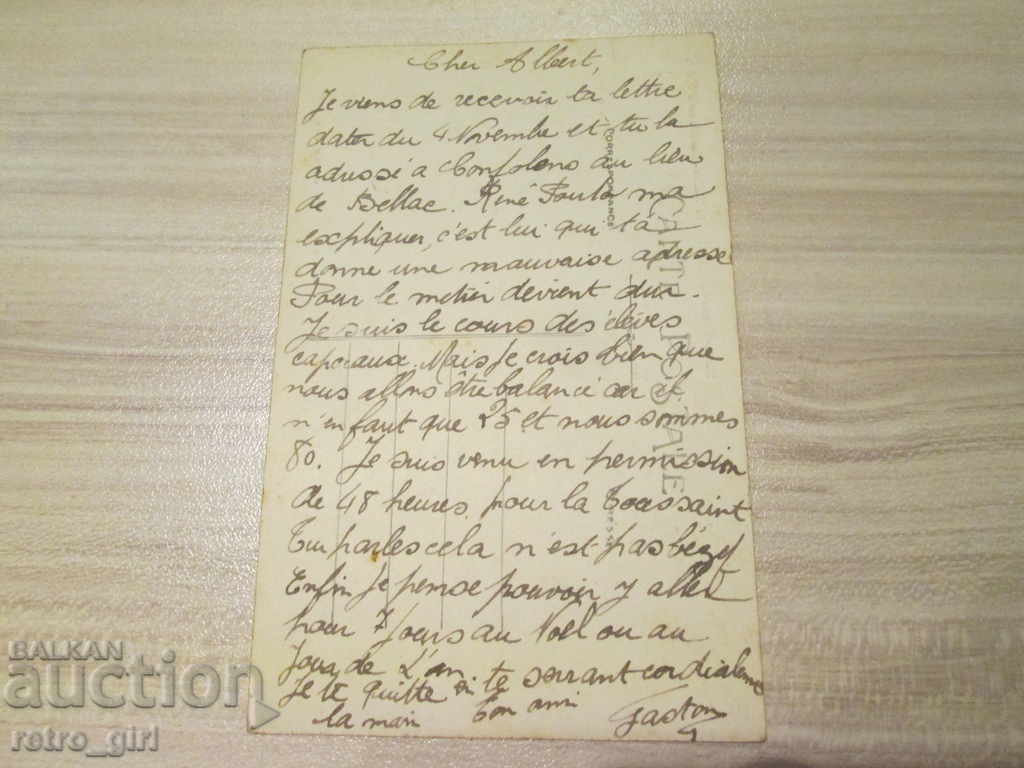 Cher Albert,
Je viens de recevoir ta lettre
dater du 4 Novembe et tu la
adussé à Confolens au lieu
de Bellac. Réné ma
expliquer, c'est lui qui t'a
donne une mauvaise adresse
Pour le metier devient dur.
Je suis le cours des éleves
caporaux. Mais Je crois bien que
nous allons être balancé car il
n'en faut que 25 et nous sommes
80. Je suis venu en permission
de 48 heures pour la Toussaint
Tu parles cela n'est pas bézef
Enfin Je pense pouvoir y aller
pour 7 Jours au Noël ou au
Jour de L'an
Je te quitte en te serrant cordialement
la main Ton ami Gaston
CARTE POSTALE
CORRESPONDANCE
BALKAN
auction
retro_girl